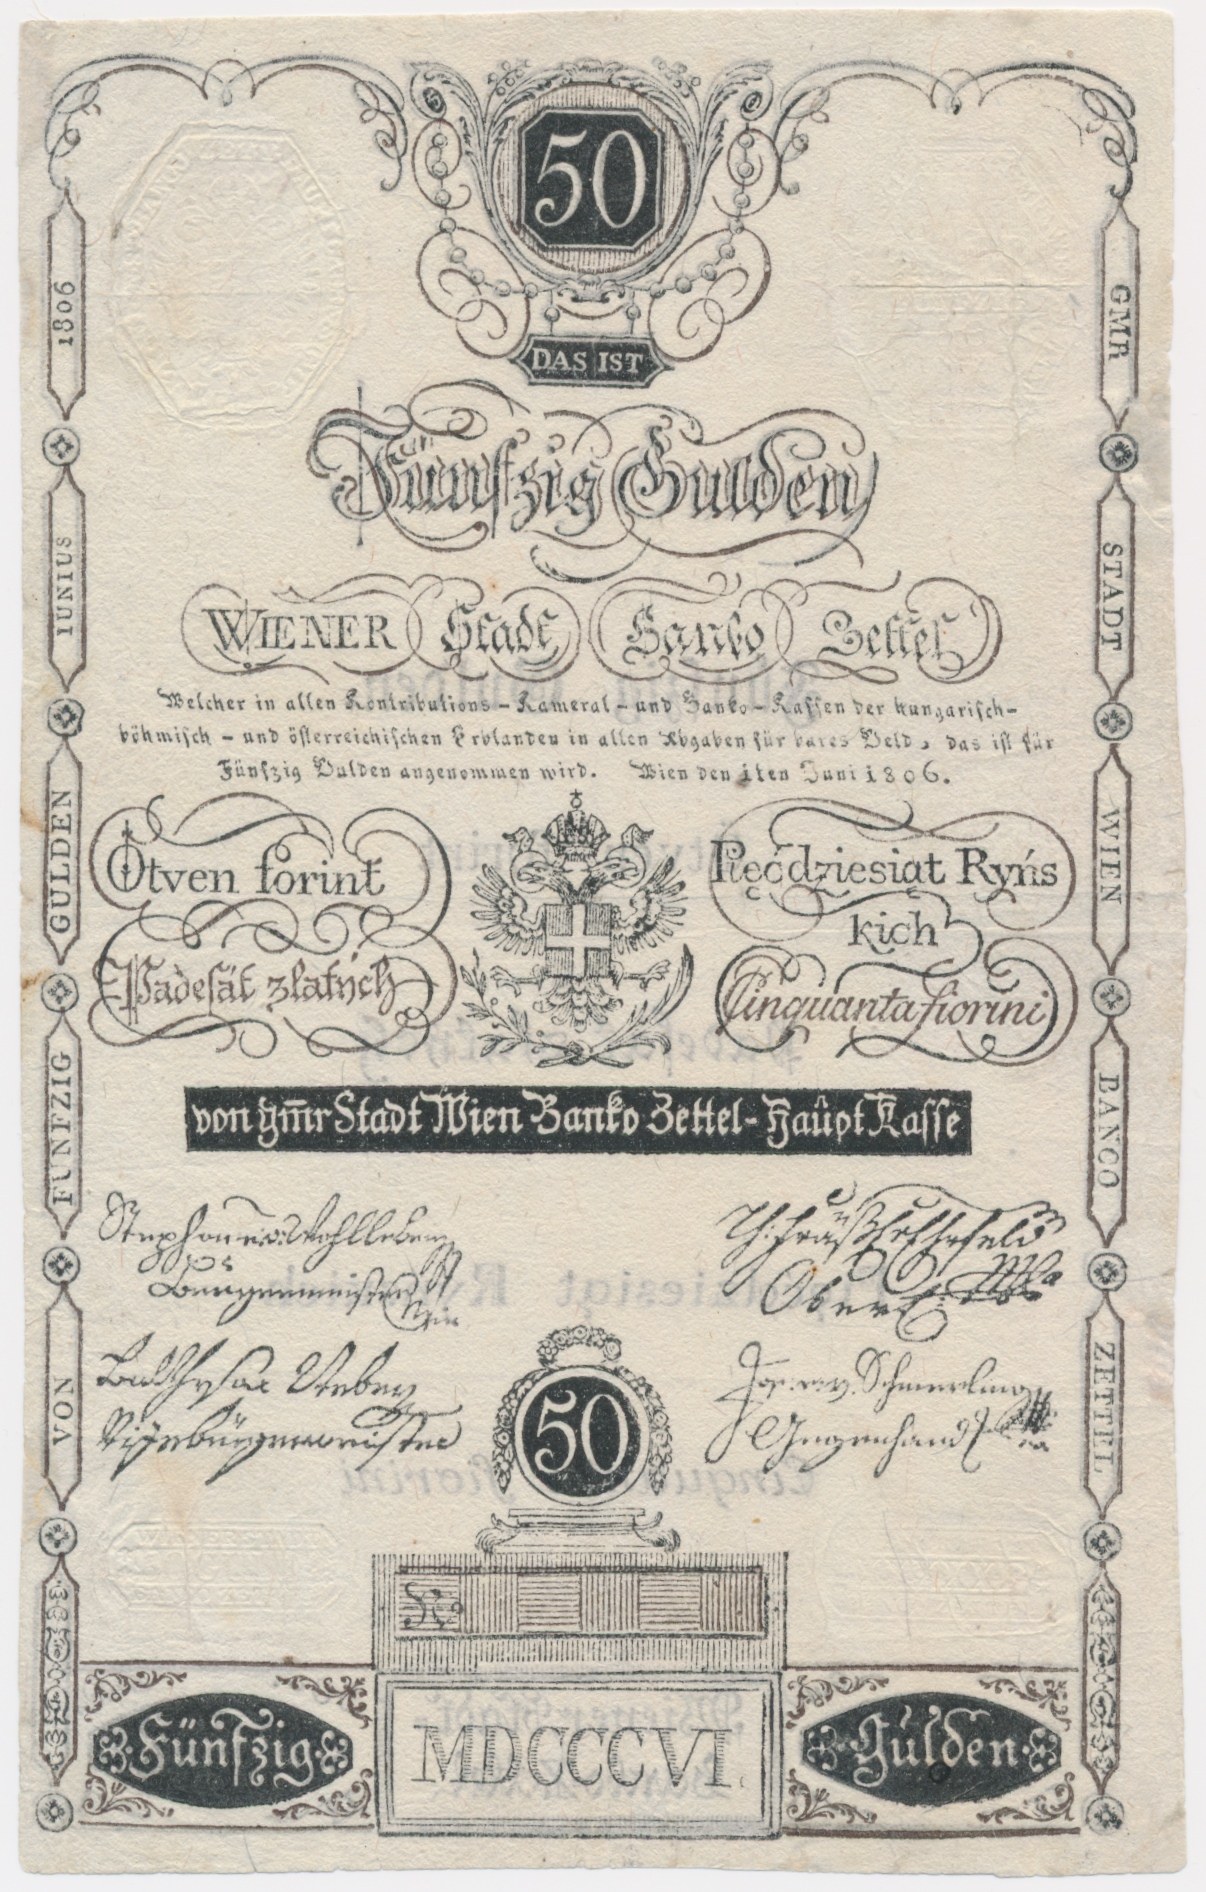 50
DAS IST
Fünfzig Gulden
WIENER Stadt Banko Zettel
Welcher in allen Kontributions - Kameral - und Banko - Kassen der hungarisch -
böhmisch - und österreichischen Erblanden in allen Abgaben für bares Geld, das ist für
Fünfzig Gulden angenommen wird. Wien den 1ten Juni 1806.
Ötven forint
Pięćdziesiąt Ryńs
kich
Padesát zlatých
Cinquanta fiorini
von Gm̄r Stadt Wien Banko Zettel - Haupt Kasse
Bürgermeister
Vizebürgermeister
50
No
Fünfzig
MDCCCVI.
Gulden
VON
FUNFZIG
GULDEN
IUNIUS
1806
GMR
STADT
WIEN
BANCO
ZETTEL